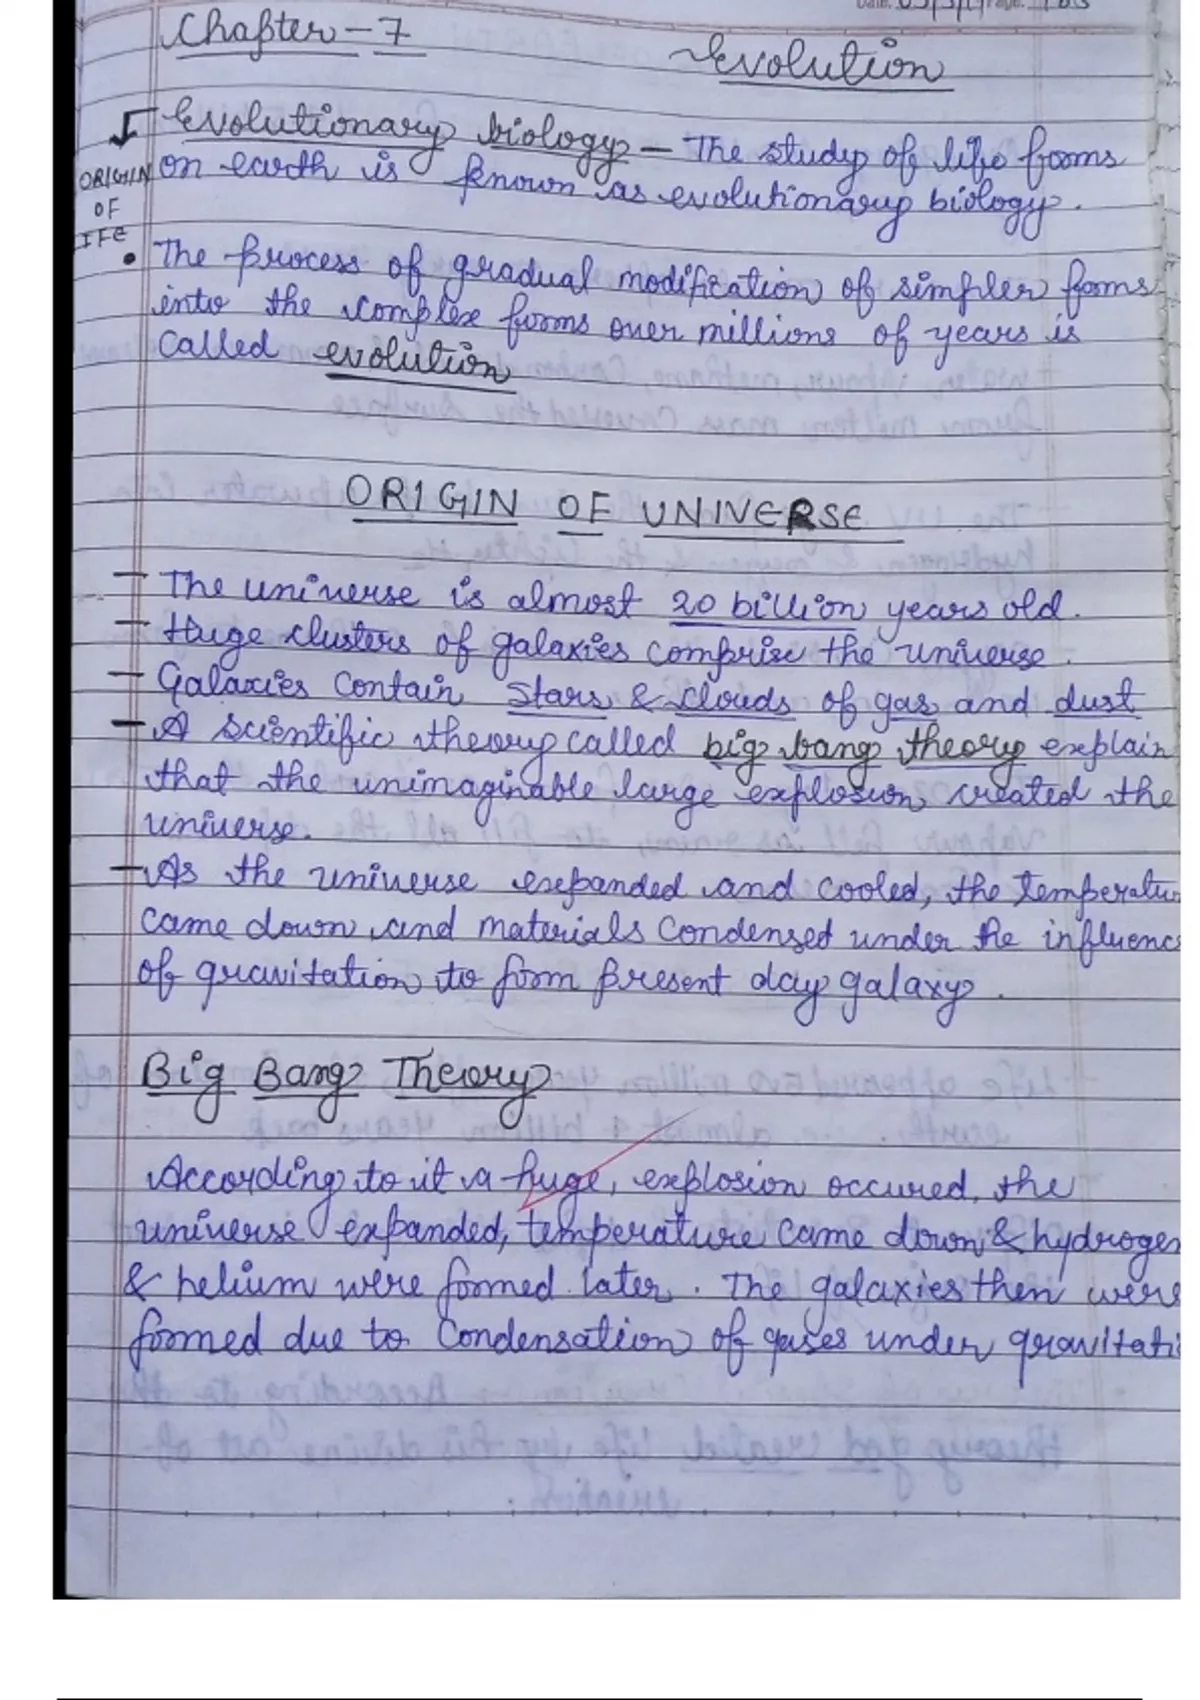 Chapter - 7
Evolution
Evolutionary biology - The study of life forms
ORIGIN
OF
IFE
on earth is known as evolutionary biology.
• The process of gradual modification of simpler forms
into the complex forms over millions of years is
called evolution
ORIGIN OF UNIVERSE
- The universe is almost 20 billion years old.
- Huge clusters of galaxies comprise the universe.
- Galaxies contain stars & clouds of gas and dust
- A scientific theory called big bang theory explain
that the unimaginable large explosion created the
universe.
- As the universe expanded and cooled, the temperatu
came down and materials condensed under the influenc
of gravitation to form present day galaxy.
Big Bang Theory
According to it a huge, explosion occured, the
universe expanded, temperature came down & hydrogen
& helium were formed later. The galaxies then were
formed due to condensation of gases under gravitati